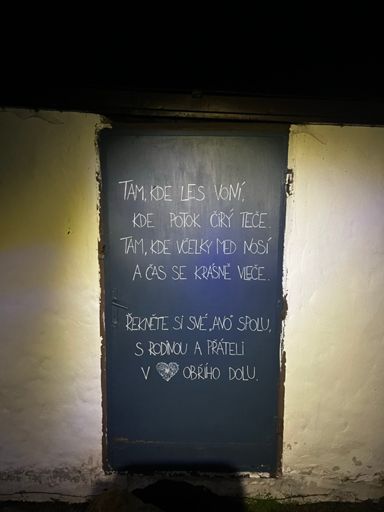 TAM, KDE LES VONÍ,
KDE POTOK ČIRÝ TEČE.
TAM, KDE VČELKY MED NOSÍ
A ČAS SE KRÁSNĚ VLEČE.
ŘEKNĚTE SI SVÉ „ANO" SPOLU,
S RODINOU A PŘÁTELI
V OBŘÍHO DOLU.